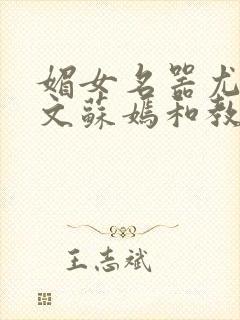 媚女名器尤
文蘇媽和教
王志斌